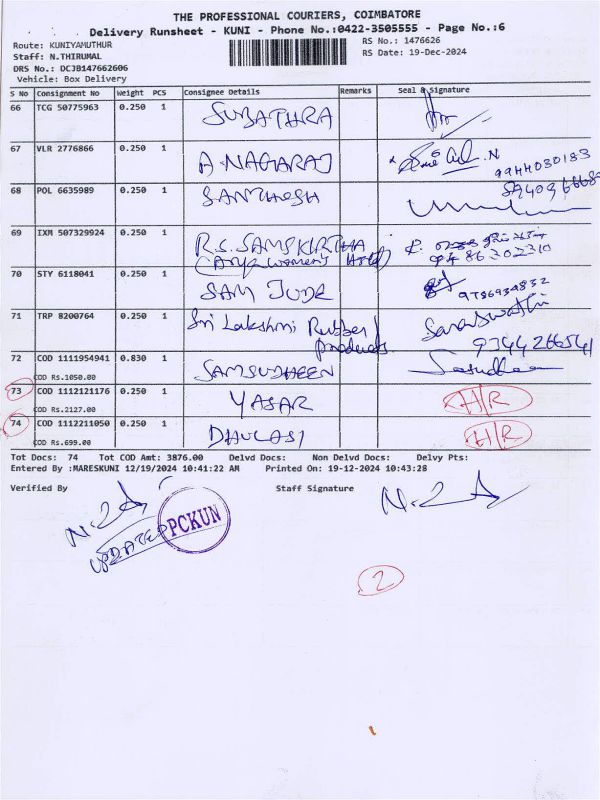 THE PROFESSIONAL COURIERS, COIMBATORE
Delivery Runsheet - KUNI - Phone No.:0422-3505555 - Page No.:6
Route: KUNIYAMUTHUR RS No.: 1476626
Staff: N.THIRUMAL RS Date: 19-Dec-2024
DRS No.: DCJB147662606
Vehicle: Box Delivery
S No Consignment No Weight PCS Consignee Details Remarks Seal & Signature
66 TCG 50775963 0.250 1 SUBATHRA
67 VLR 2776866 0.250 1 A.NAGARAJ
9944030183
68 POL 6635989 0.250 1 SANTHOSH
69 IXM 507329924 0.250 1 R.S. SAMSKIRTHA
women's
70 STY 6118041 0.250 1 SAM JUDE
9786934832
71 TRP 8200764 0.250 1 Sri Lakshmi Rubber Saraswathi
products 9344266541
72 COD 1111954941 0.830 1 SAMSUDHEEN
COD Rs.1050.00
73 COD 1112121176 0.250 1 YASAR H/R
COD Rs.2127.00
74 COD 1112211050 0.250 1 DHULASI H/R
COD Rs.699.00
Tot Docs: 74 Tot COD Amt: 3876.00 Delvd Docs: Non Delvd Docs: Delvy Pts:
Entered By :MARESKUNI 12/19/2024 10:41:22 AM Printed On: 19-12-2024 10:43:28
Verified By Staff Signature
UPDATED
PCKUN
2